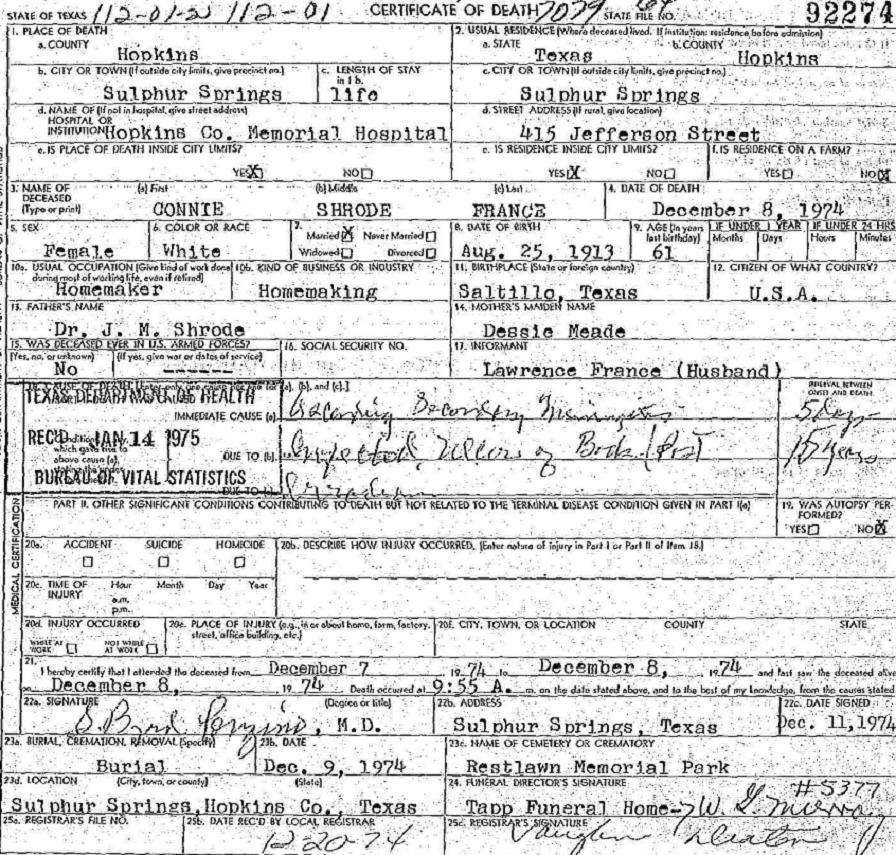 STATE OF TEXAS 112-01-25 112-01 CERTIFICATE OF DEATH 7079 STATE FILE NO. 92274
1. PLACE OF DEATH
a. COUNTY
Hopkins
2. USUAL RESIDENCE (Where deceased lived. If institution: residence before admission)
a. STATE b. COUNTY
Texas Hopkins
b. CITY OR TOWN (If outside city limits, give precinct no.)
Sulphur Springs
c. LENGTH OF STAY in 1b.
life
c. CITY OR TOWN (If outside city limits, give precinct no.)
Sulphur Springs
d. NAME OF (If not in hospital, give street address)
HOSPITAL OR
INSTITUTION Hopkins Co. Memorial Hospital
d. STREET ADDRESS (If rural, give location)
415 Jefferson Street
e. IS PLACE OF DEATH INSIDE CITY LIMITS?
YES X NO
e. IS RESIDENCE INSIDE CITY LIMITS?
YES X NO
f. IS RESIDENCE ON A FARM?
YES NO X
3. NAME OF DECEASED (Type or print)
(a) First (b) Middle (c) Last
CONNIE SHRODE FRANCE
4. DATE OF DEATH
December 8, 1974
5. SEX
Female
6. COLOR OR RACE
White
7. Married X Never Married
Widowed Divorced
8. DATE OF BIRTH
Aug. 25, 1913
9. AGE (In years last birthday)
61
IF UNDER 1 YEAR
Months Days
IF UNDER 24 HRS
Hours Minutes
10a. USUAL OCCUPATION (Give kind of work done during most of working life, even if retired)
Homemaker
10b. KIND OF BUSINESS OR INDUSTRY
Homemaking
11. BIRTHPLACE (State or foreign country)
Saltillo, Texas
12. CITIZEN OF WHAT COUNTRY?
U.S.A.
13. FATHER'S NAME
Dr. J. M. Shrode
14. MOTHER'S MAIDEN NAME
Dessie Meade
15. WAS DECEASED EVER IN U.S. ARMED FORCES?
(Yes, no, or unknown) (If yes, give war or dates of service)
No ------
16. SOCIAL SECURITY NO.
17. INFORMANT
Lawrence France (Husband)
18. CAUSE OF DEATH [Enter only one cause per line for (a), (b), and (c).]
TEXAS DEPARTMENT OF HEALTH
IMMEDIATE CAUSE (a) Ascending Secondary Meningitis
INTERVAL BETWEEN ONSET AND DEATH
5 days
REC'D JAN 14 1975
which gave rise to
above cause (a),
stating the under
DUE TO (b) Infected Ulcers of Back (Post
15 years
BUREAU OF VITAL STATISTICS
DUE TO (c)
PART II. OTHER SIGNIFICANT CONDITIONS CONTRIBUTING TO DEATH BUT NOT RELATED TO THE TERMINAL DISEASE CONDITION GIVEN IN PART I(a)
19. WAS AUTOPSY PERFORMED?
YES NO X
MEDICAL CERTIFICATION
20a. ACCIDENT SUICIDE HOMICIDE
20b. DESCRIBE HOW INJURY OCCURRED. (Enter nature of injury in Part I or Part II of Item 18.)
20c. TIME OF INJURY Hour Month Day Year
a.m.
p.m.
20d. INJURY OCCURRED
WHILE AT WORK NOT WHILE AT WORK
20e. PLACE OF INJURY (e.g., in or about home, farm, factory, street, office building, etc.)
20f. CITY, TOWN, OR LOCATION COUNTY STATE
21. I hereby certify that I attended the deceased from December 7 19 74 to December 8, 19 74 and last saw the deceased alive
on December 8, 19 74. Death occurred at 9:55 A. m. on the date stated above, and to the best of my knowledge, from the causes stated
22a. SIGNATURE (Degree or title)
M.D.
22b. ADDRESS
Sulphur Springs, Texas
22c. DATE SIGNED
Dec. 11, 1974
23a. BURIAL, CREMATION, REMOVAL (Specify)
Burial
23b. DATE
Dec. 9, 1974
23c. NAME OF CEMETERY OR CREMATORY
Restlawn Memorial Park
23d. LOCATION (City, town, or county) (State)
Sulphur Springs, Hopkins Co., Texas
24. FUNERAL DIRECTOR'S SIGNATURE #5377
Tapp Funeral Home
25a. REGISTRAR'S FILE NO.
25b. DATE REC'D BY LOCAL REGISTRAR
12-20-74
25c. REGISTRAR'S SIGNATURE
Vaughn